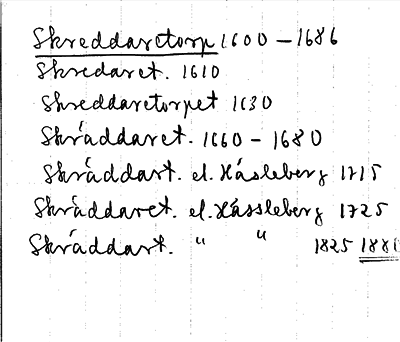 Skreddaretorp 1600 – 1686
Skredaret. 1610
Skreddaretorpet 1630
Skräddaret. 1660 – 1680
Skräddart. el. Hásleberg 1715
Skräddaret. el. Hássleberg 1725
Skräddart. " " 1825 1881